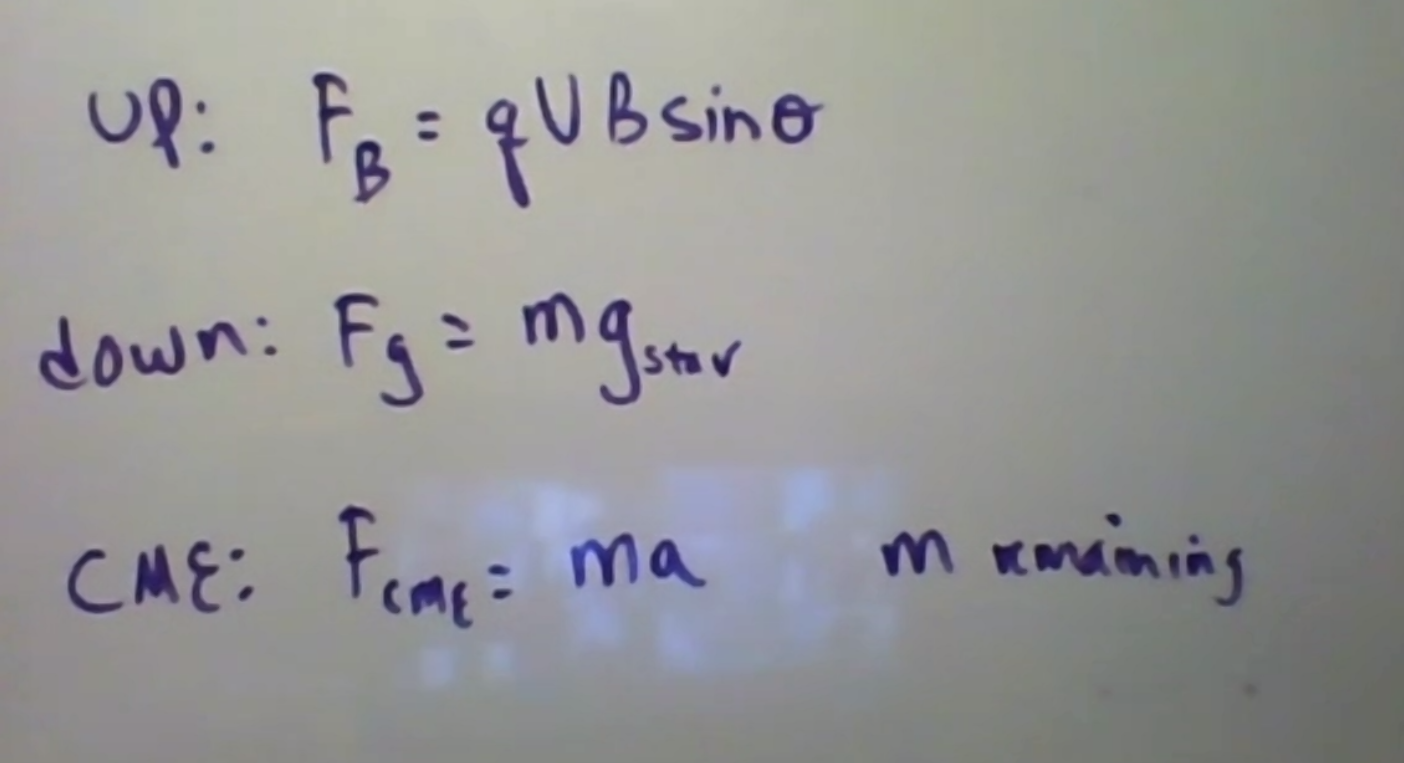 UP: F_B = qVB sinθ
down: F_g = mg_star
CME: F_CME = ma m remaining